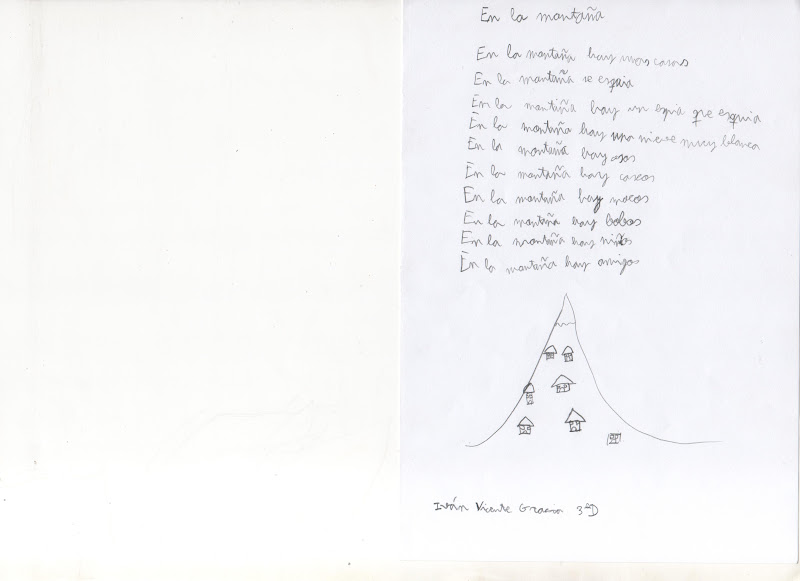 En la montaña
En la montaña hay unas casas
En la montaña se esquia
En la montaña hay un espia que esquia
En la montaña hay una nieve muy blanca
En la montaña hay osos
En la montaña hay cascos
En la montaña hay mocos
En la montaña hay bobos
En la montaña hay niños
En la montaña hay amigos
Iván Vicente 3ºD